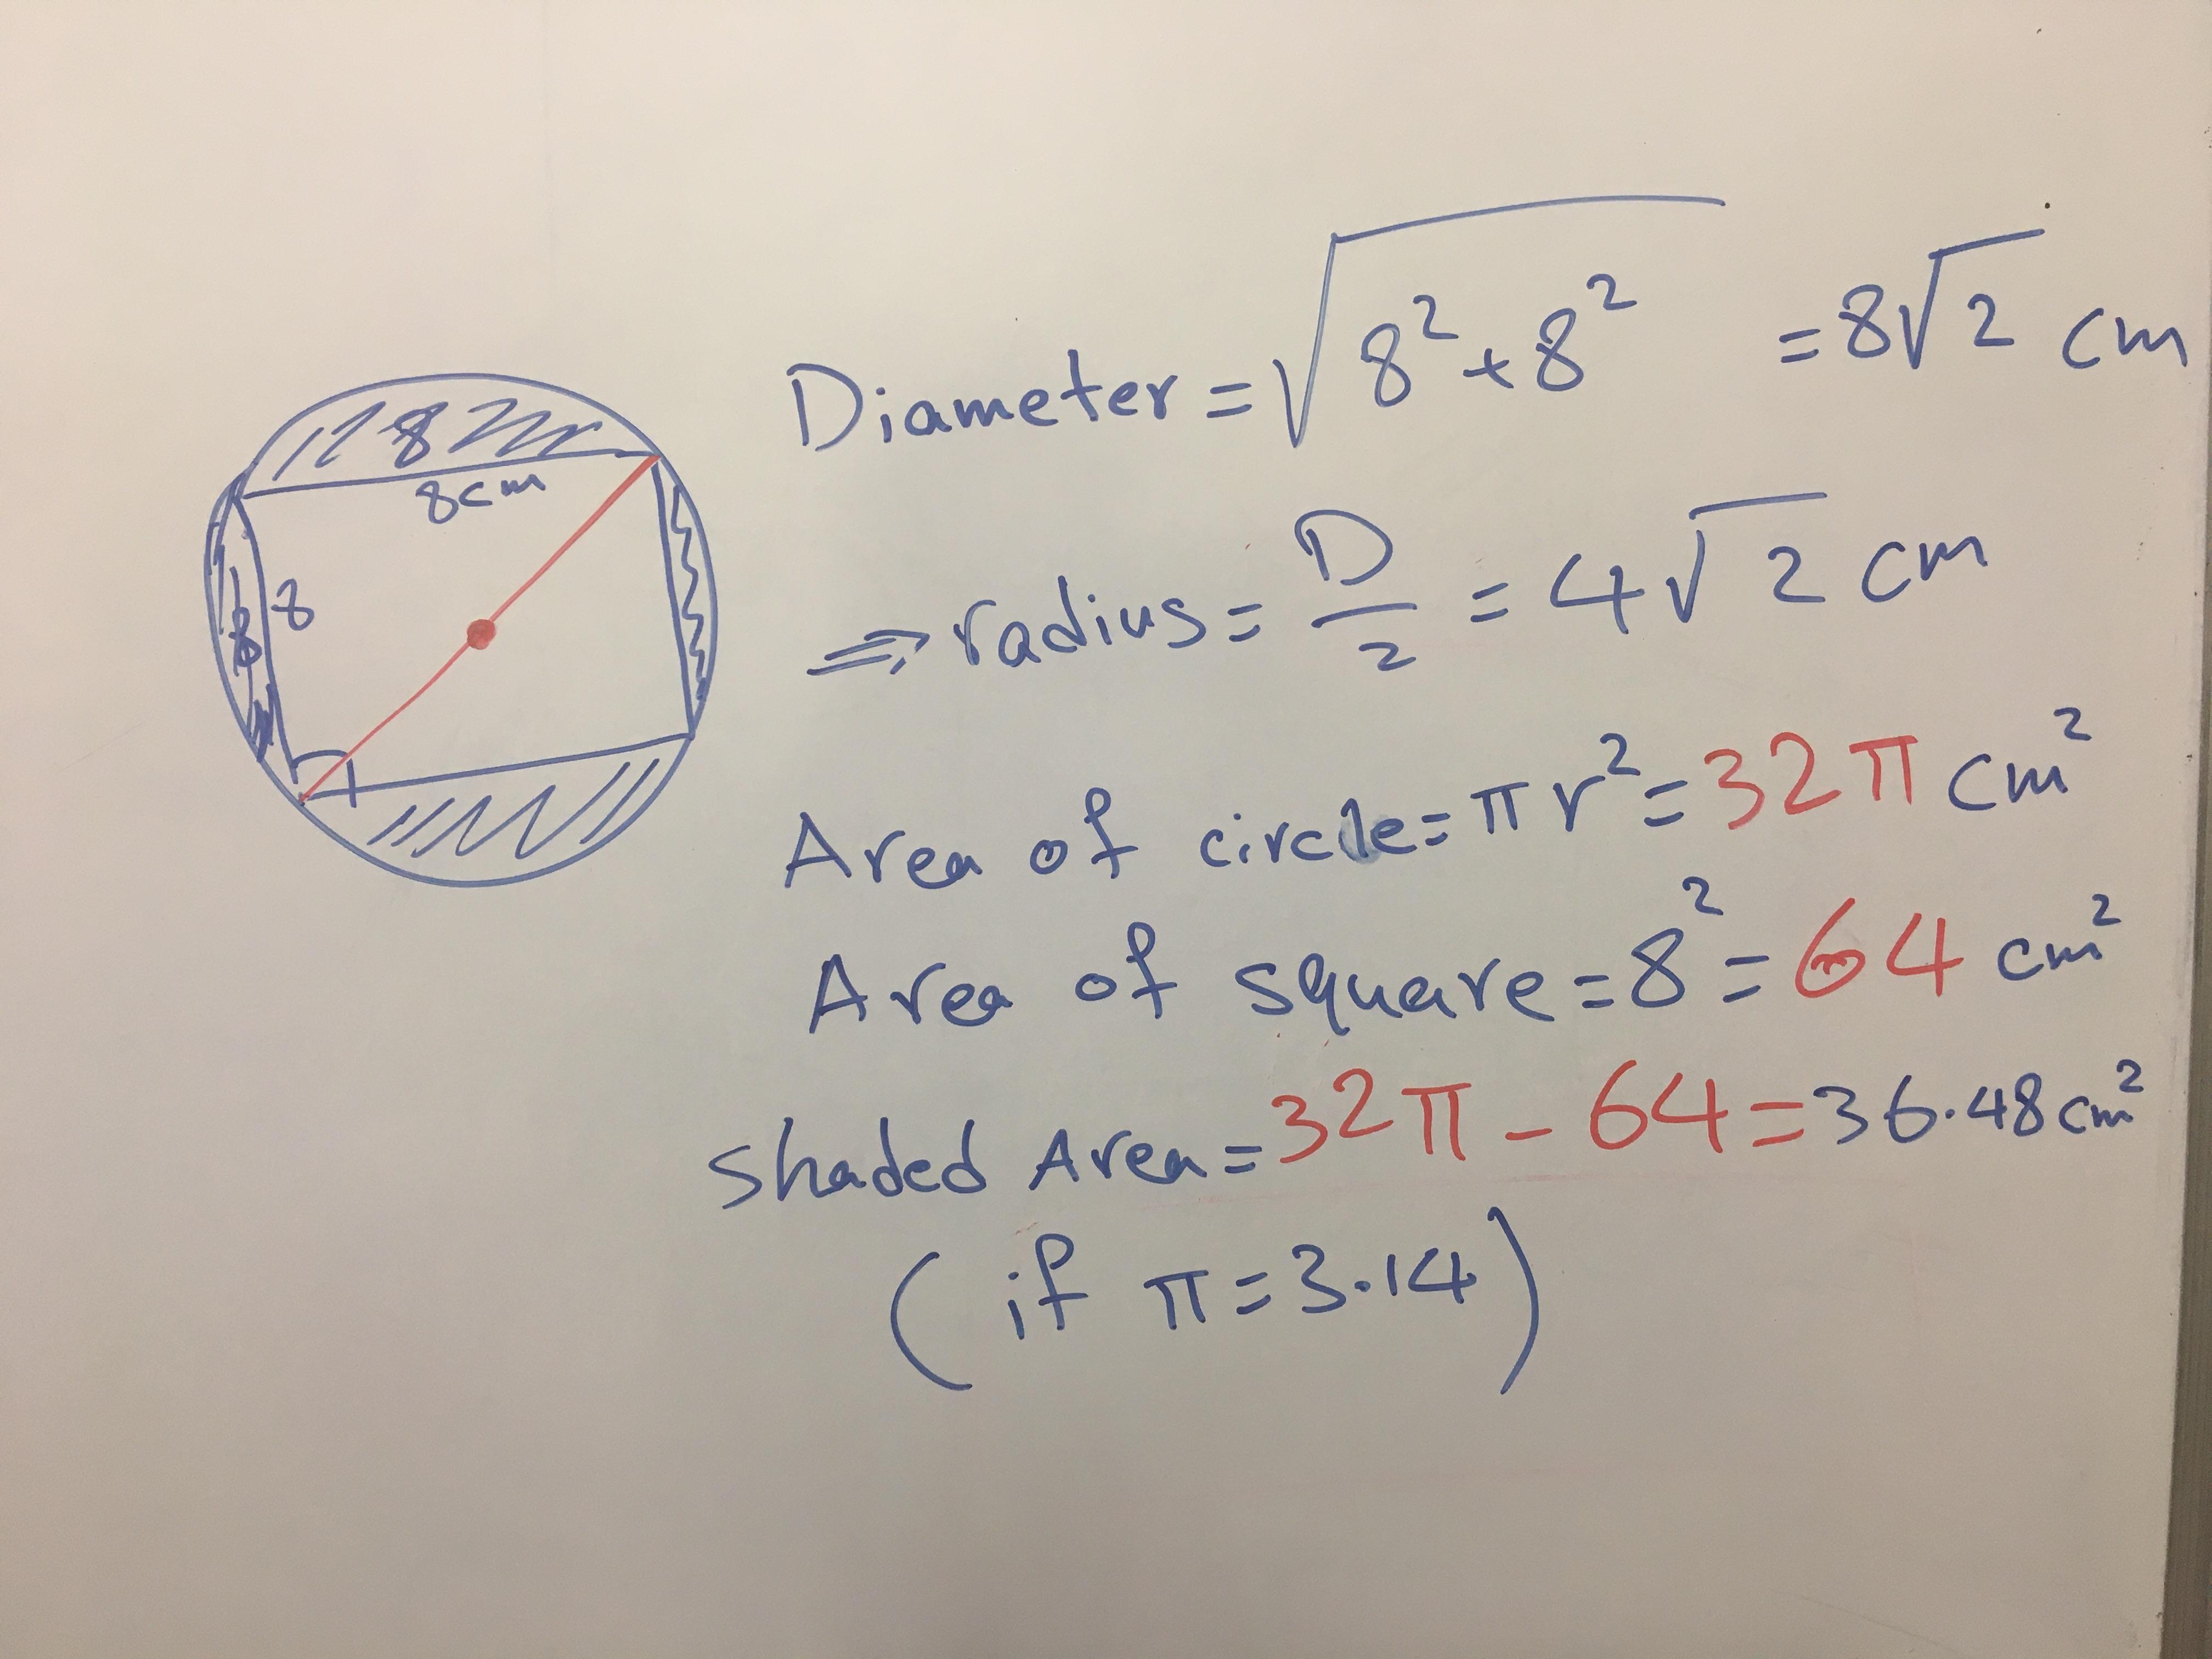 8
8cm
8
8
Diameter = √8²+8² = 8√2 cm
⇒ radius = D/2 = 4√2 cm
Area of circle = πr² = 32π cm²
Area of square = 8² = 64 cm²
Shaded Area = 32π - 64 = 36.48 cm²
(if π = 3.14)